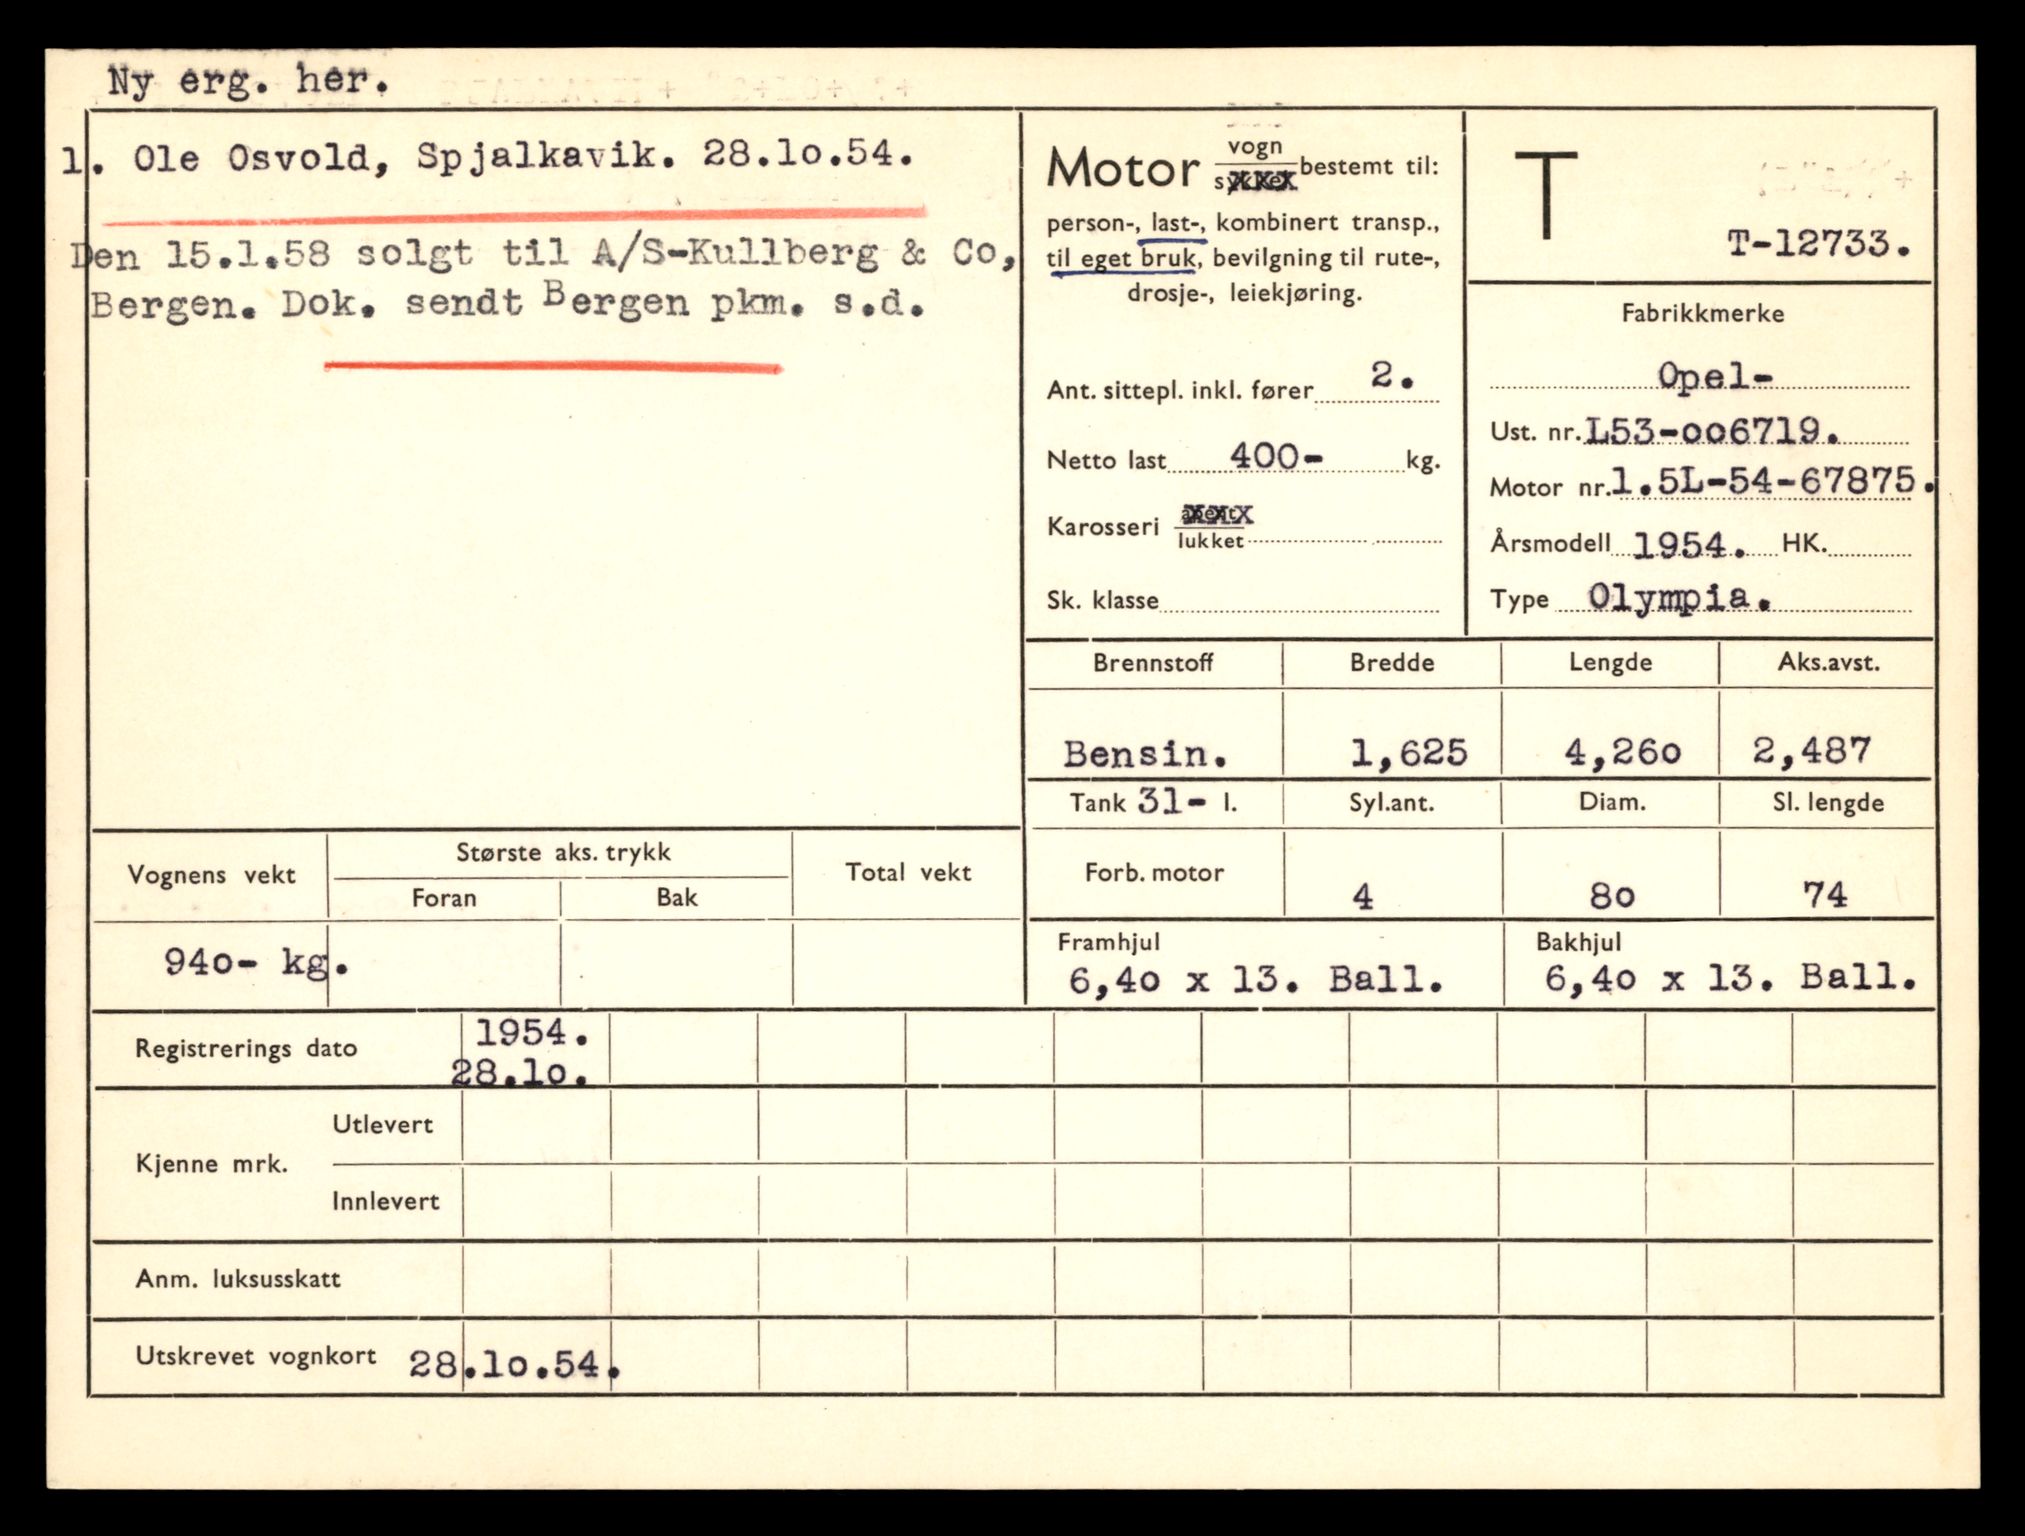 Ny erg. her.
1. Ole Osvold, Spjalkavik. 28.10.54.
Den 15.1.58 solgt til A/S-Kullberg & Co,
Bergen. Dok. sendt Bergen pkm. s.d.
Motor vogn bestemt til:
person-, last-, kombinert transp.,
til eget bruk, bevilgning til rute-,
drosje-, leiekjøring.
Ant. sittepl. inkl. fører 2.
Netto last 400- kg.
Karosseri lukket
Sk. klasse
T
T-12733.
Fabrikkmerke
Opel-
Ust. nr. L53-006719.
Motor nr. 1.5L-54-67875.
Årsmodell 1954. HK.
Type Olympia.
Brennstoff Bredde Lengde Aks.avst.
Bensin. 1,625 4,260 2,487
Tank 31- l. Syl.ant. Diam. Sl. lengde
Forb. motor 4 80 74
Framhjul Bakhjul
6,40 x 13. Ball. 6,40 x 13. Ball.
Vognens vekt Største aks. trykk Total vekt
Foran Bak
940- kg.
Registrerings dato 1954.
28.10.
Kjenne mrk. Utlevert
Innlevert
Anm. luksusskatt
Utskrevet vognkort 28.10.54.